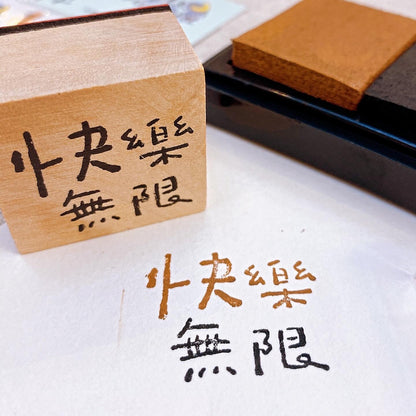 快樂
無限
快樂
無限